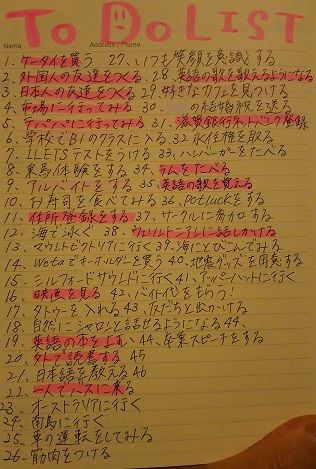 TO DO LIST
Name Address / Phone
1、ケータイを買う 27、いつも笑顔を意識する
2、外国人の友達をつくる 28、英語の歌を歌えるようになる
3、日本人の友達をつくる 29、好きなカフェを見つける
4、市場に行ってみる 30、 の結婚祝を送る
5、テパパに行ってみる 31、滋賀銀行ネットバンク登録
6、学校でB1のクラスに入る 32、永住権を取る
7、ILETSテストをうける 33、ハンバーガーをたべる
8、乗馬体験をする 34、ラムをたべる
9、アルバイトをする 35、英語の歌を覚える
10、お寿司を食べてみる 36、Potluckをする
11、住所登録をする 37、サークルに参加する
12、海で泳ぐ 38、ウェリントニアンに話しかける
13、マウントビクトリアに行く 39、海にとびこんでみる
14、Wetaでキーホルダーを買う 40、地震グッズを用意する
15、ミルフォードサウンドに行く 41、アッピーハットに行く
16、映画を見る 42、バイト代をもらう!
17、タトゥーを入れる 43、友だちと出かける
18、自然にシャロンと話せるようになる 44、
19、英語の本をよむ 44、卒業スピーチをする
20、外で読書する 45
21、日本語を教える 46
22、一人でバスに乗る
23、オーストラリアに行く
24、南島に行く
25、車の運転をしてみる
26、筋肉をつける